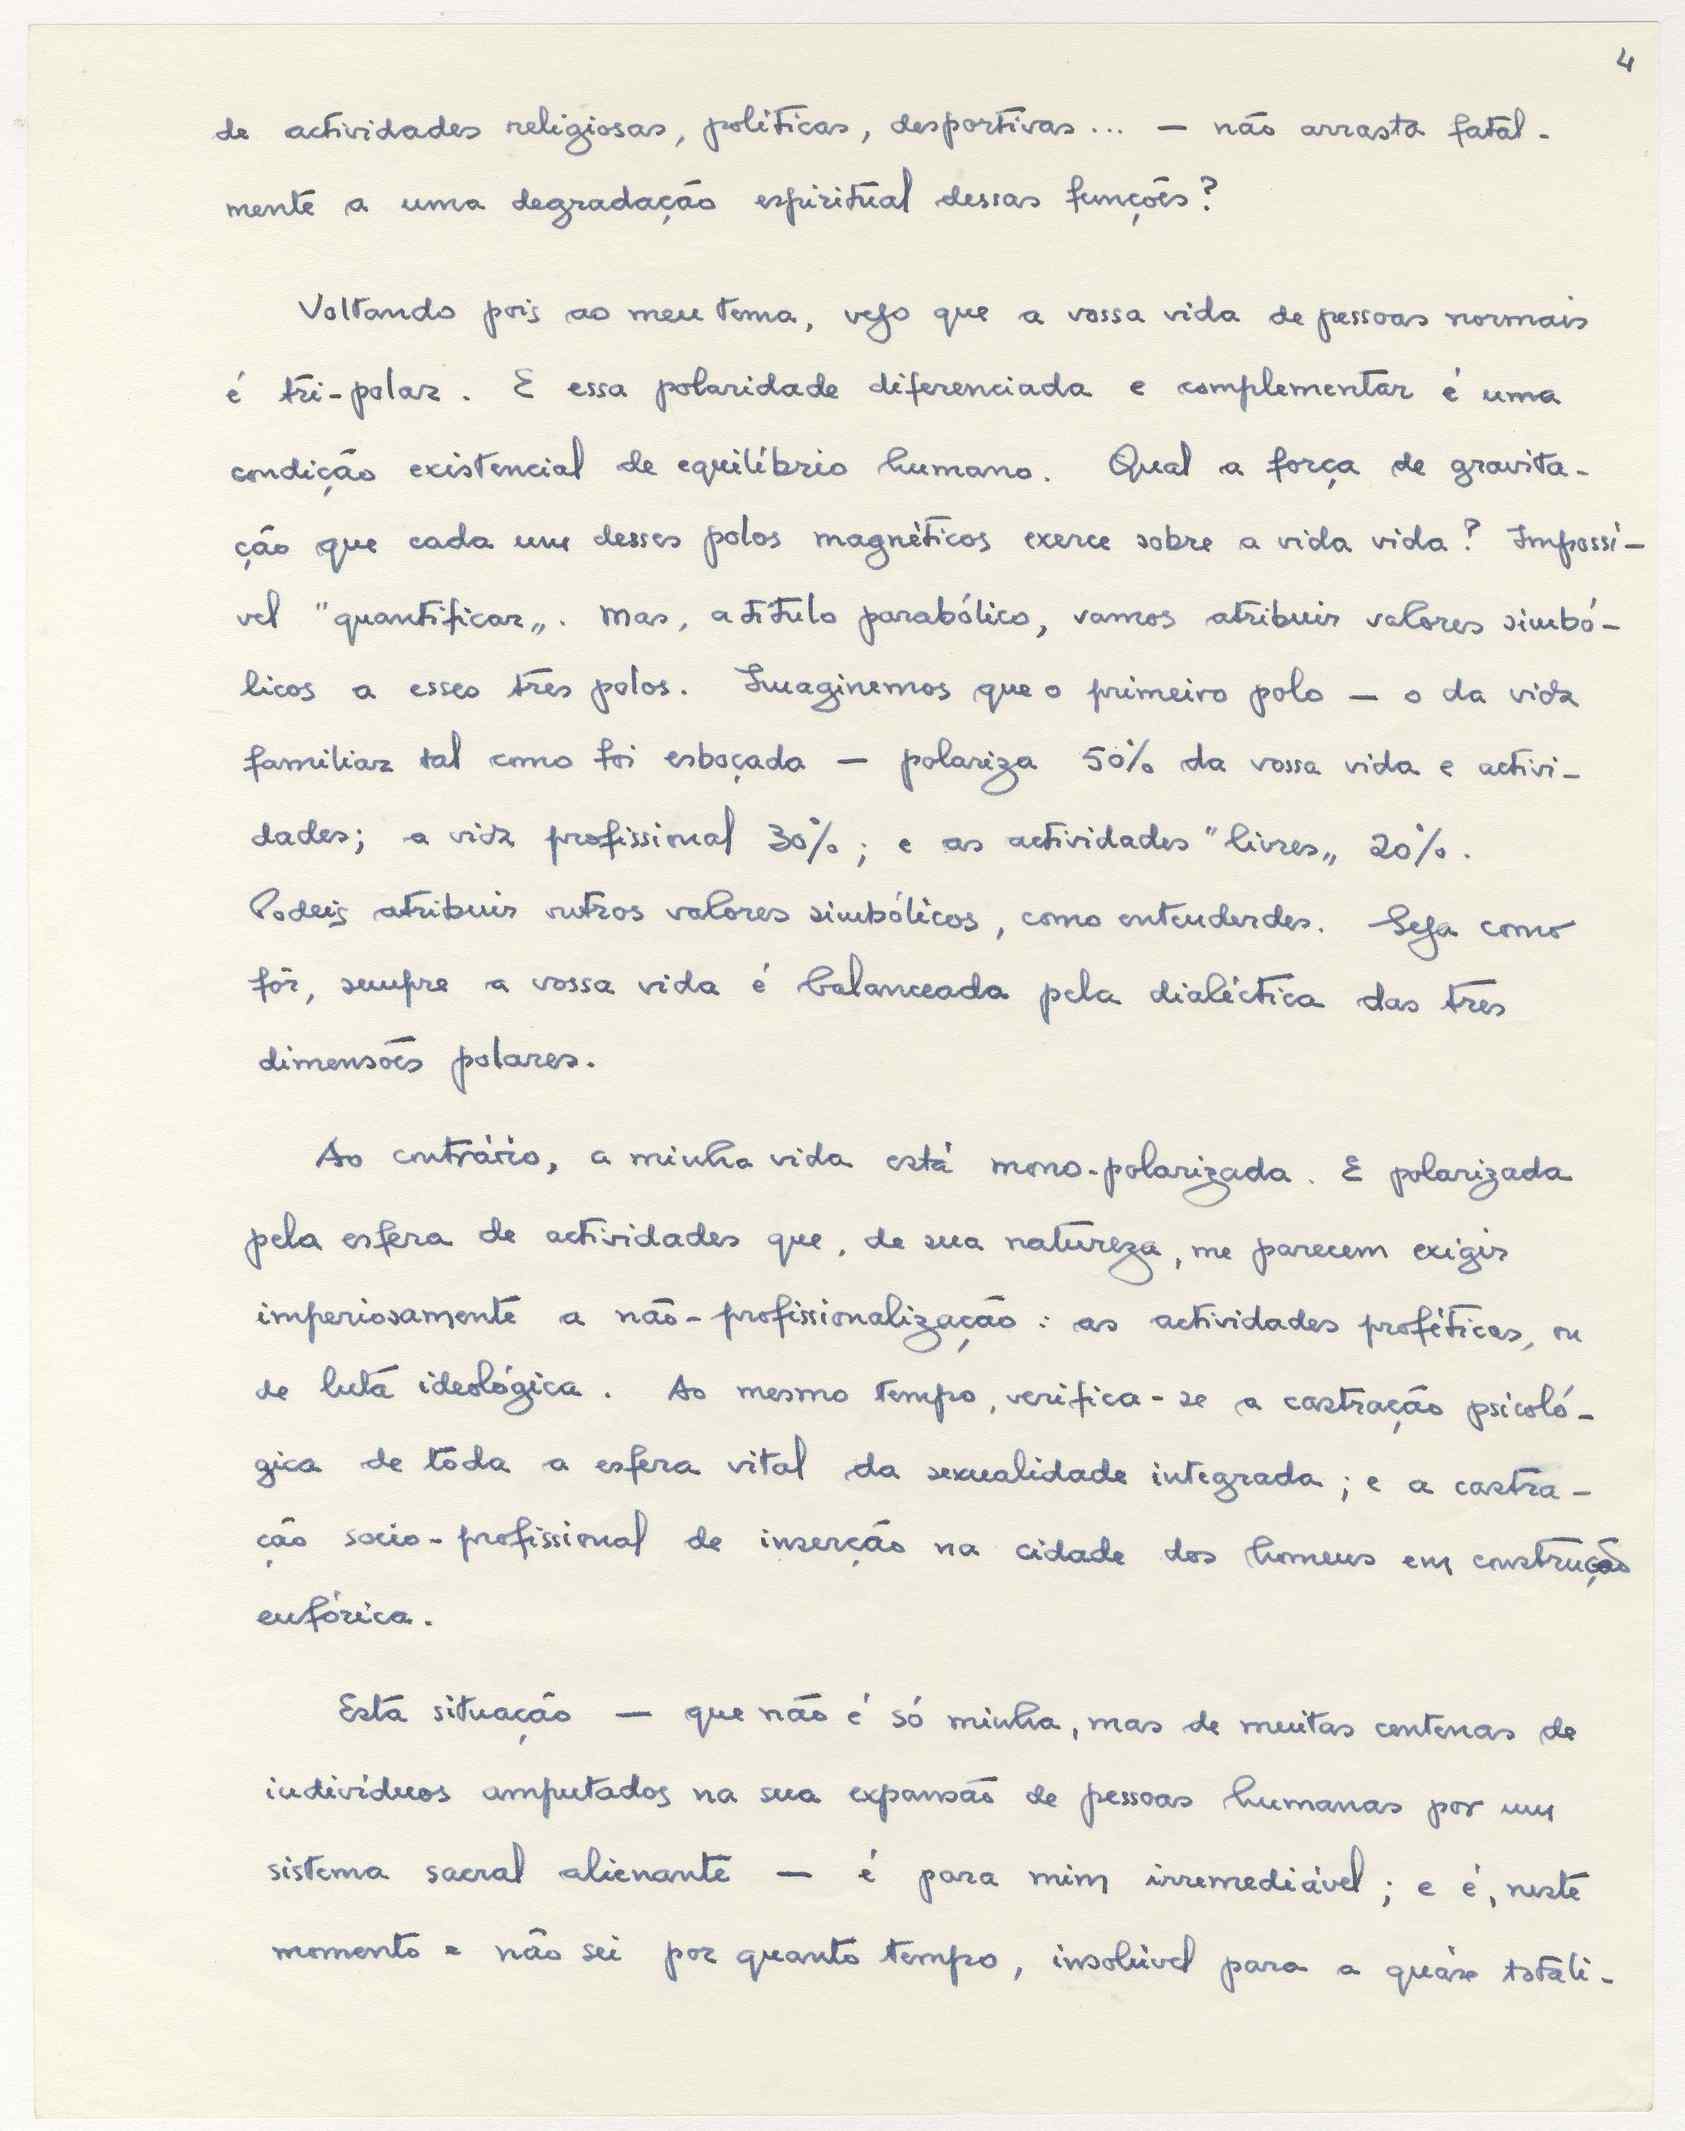 4
de actividades religiosas, políticas, desportivas... — não arrasta fatal-
mente a uma degradação espiritual dessas funções?
Voltando pois ao meu tema, vejo que a vossa vida de pessoas normais
é tri-polar. E essa polaridade diferenciada e complementar é uma
condição existencial de equilíbrio humano. Qual a força de gravita-
ção que cada um desses polos magnéticos exerce sobre a vida vida? Impossí-
vel "quantificar„. Mas, a título parabólico, vamos atribuir valores simbó-
licos a esses três polos. Imaginemos que o primeiro polo — o da vida
familiar tal como foi esboçada — polariza 50% da vossa vida e activi-
dades; a vida profissional 30%; e as actividades "livres„ 20%.
Podeis atribuir outros valores simbólicos, como entenderdes. Seja como
fôr, sempre a vossa vida é balanceada pela dialéctica das três
dimensões polares.
Ao contrário, a minha vida está mono-polarizada. E polarizada
pela esfera de actividades que, de sua natureza, me parecem exigir
imperiosamente a não-profissionalização: as actividades proféticas, ou
de luta ideológica. Ao mesmo tempo, verifica-se a castração psicoló-
gica de tôda a esfera vital da sexualidade integrada; e a castra-
ção socio-profissional de inserção na cidade dos homens em construção
eufórica.
Esta situação — que não é só minha, mas de muitas centenas de
indivíduos amputados na sua expansão de pessoas humanas por um
sistema sacral alienante — é para mim irremediável; e é, neste
momento e não sei por quanto tempo, insolúvel para a quáse totali-